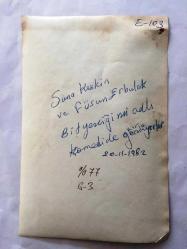 E-103
Suna Keskin
ve Füsun Erbulak
Bit Yeniği adlı
komedide görülüyorlar
20-11-1982
% 77
G-3